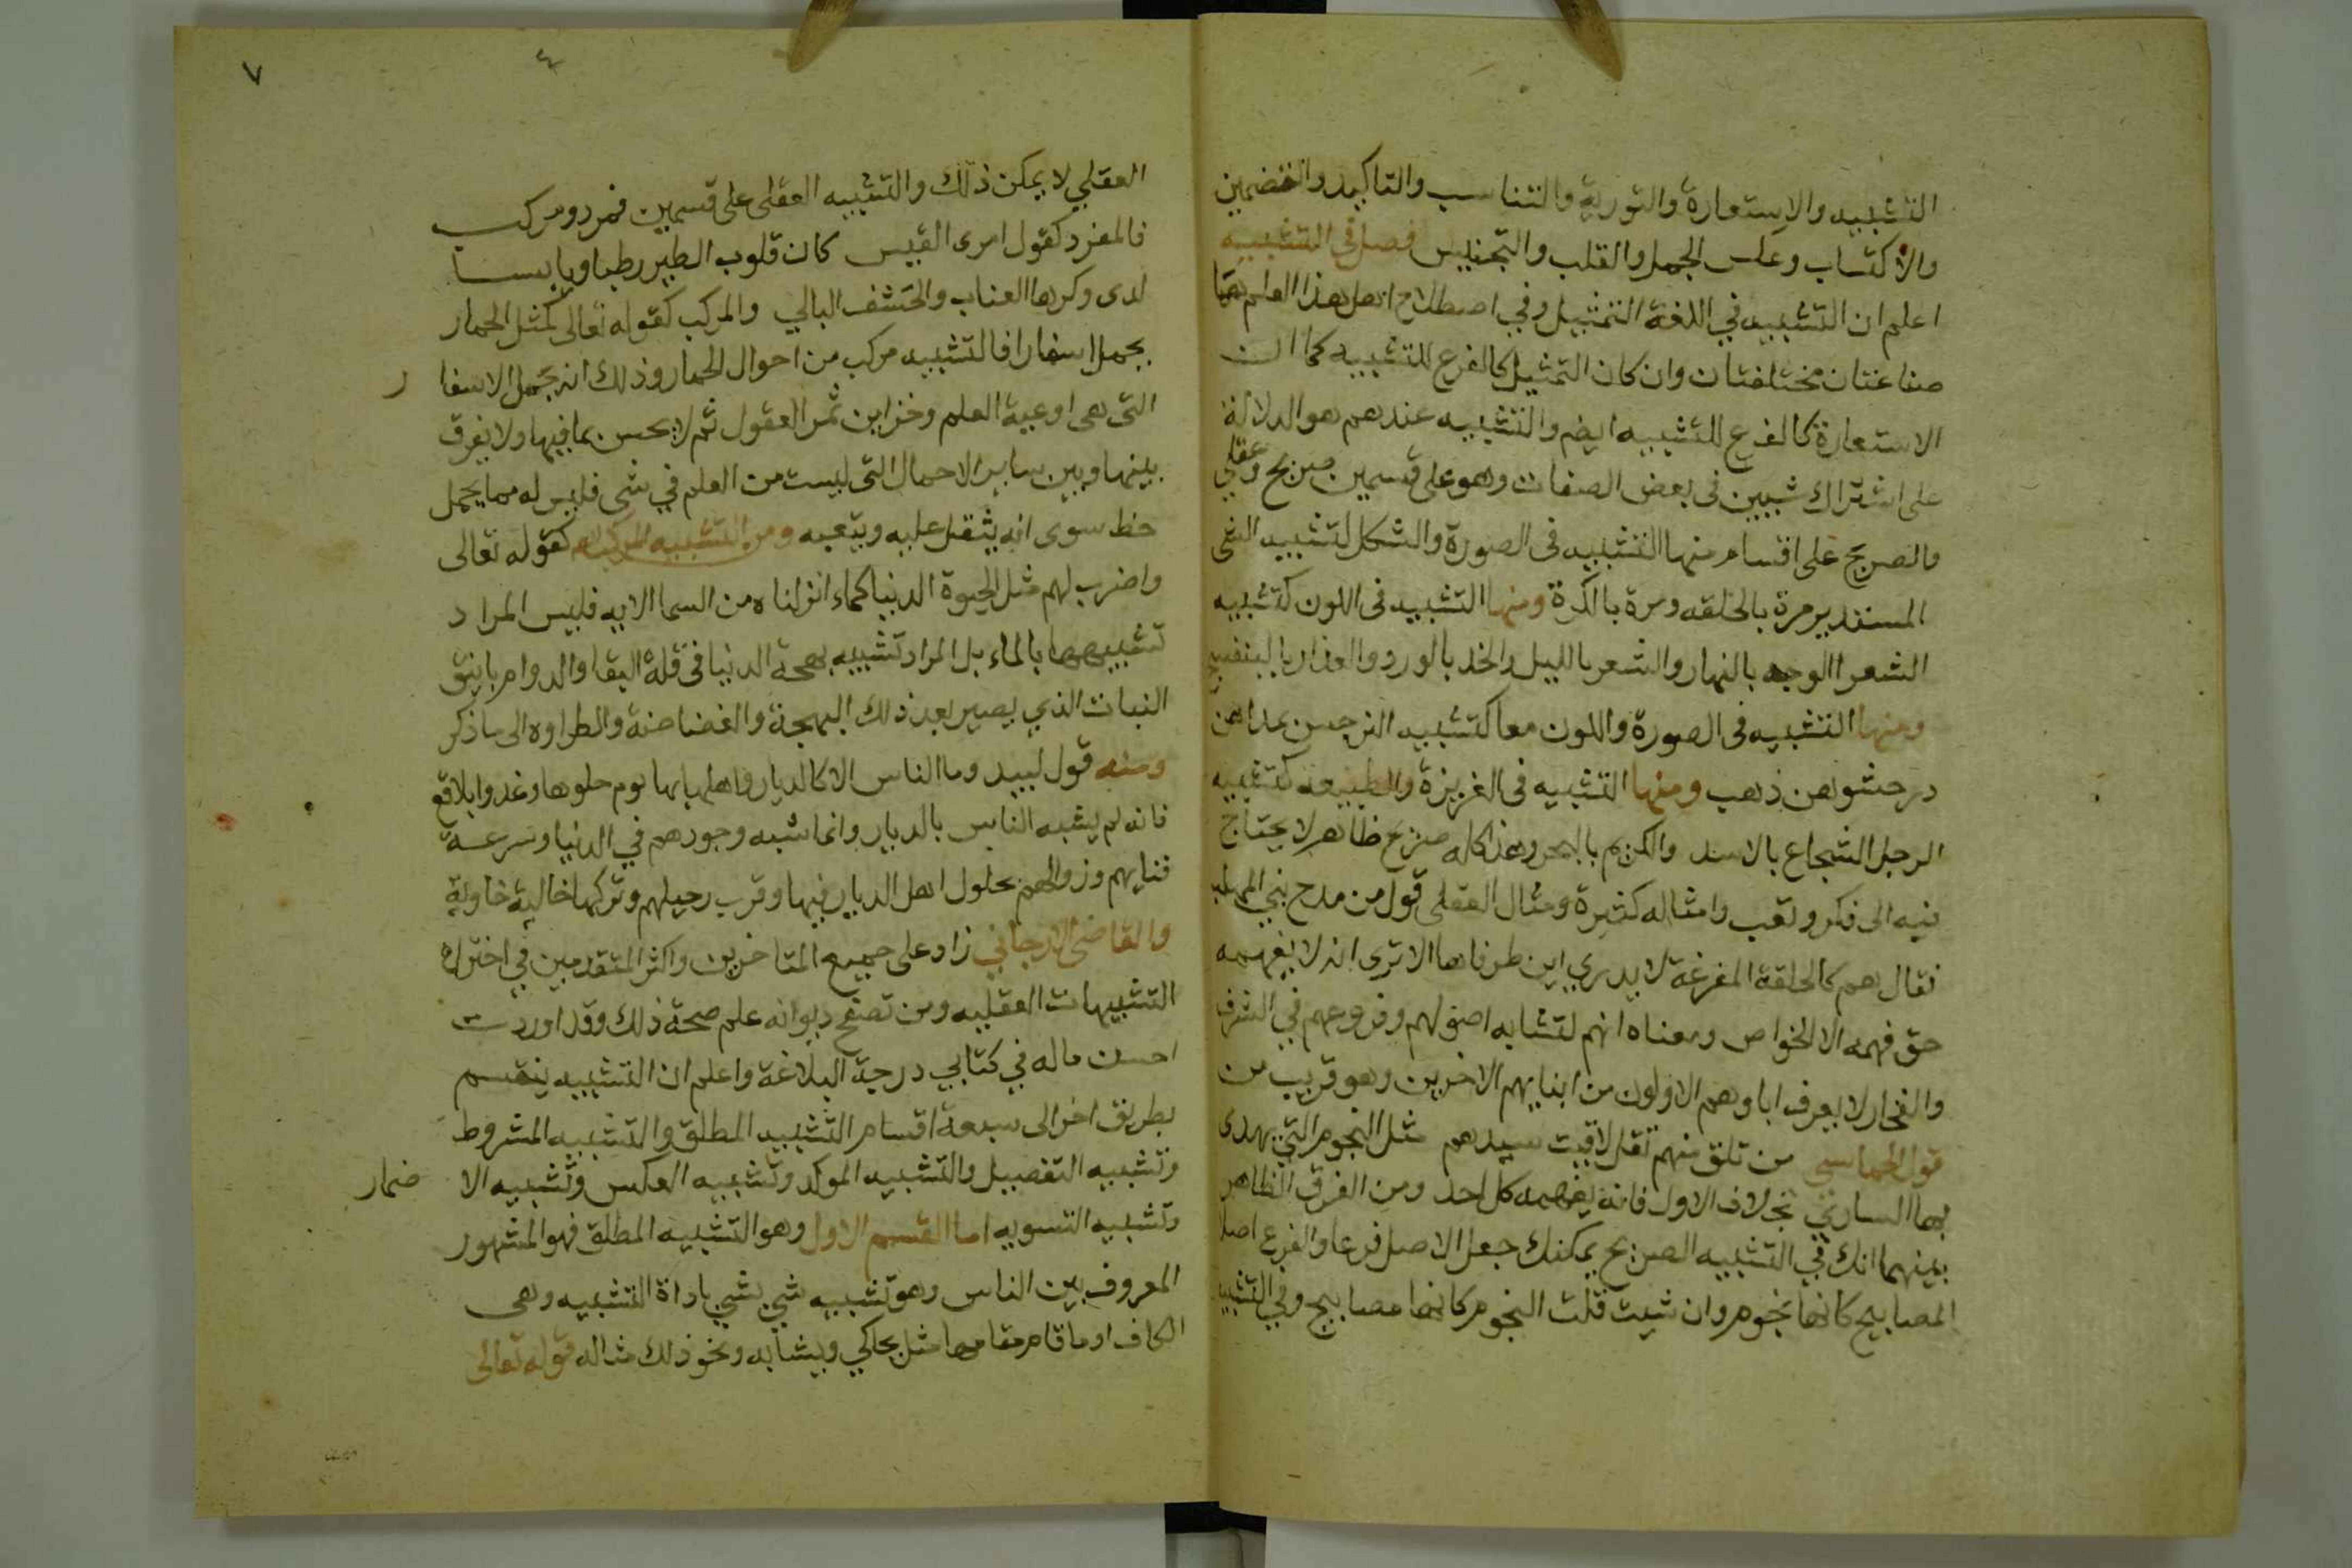 التشبيه والاستعارة والتورية والتناسب والتاكيد والتضمين
والاكتساب وعكس الجمل والقلب والتجنيس فصل في التشبيه
اعلم ان التشبيه في اللغة التمثيل وفي اصطلاح اهل هذا العلم هما
صناعتان مختلفتان وان كان التمثيل كالفرع للتشبيه كما ان
الاستعارة كالفرع للتشبيه ايضم والتشبيه عندهم هو الدلالة
على اشتراك شيين في بعض الصفات وهو على قسمين صريح وعقلي
والصريح على اقسام منها التشبيه في الصورة والشكل كتشبيه الشي
المستدير مرة بالحلقه ومرة بالكرة ومنها التشبيه في اللون كتشبيه
الشعرا الوجه بالنهار والشعر بالليل والخد بالورد والعذار بالبنفسج
ومنها التشبيه في الصورة واللون معا كتشبيه النرجس بمداهن
در حشوهن ذهب ومنها التشبيه في الغريزة والطبيعة كتشبيه
الرجل الشجاع بالاسد والكريم بالبحر وهذا كله صريح ظاهر لا يحتاج
فيه الى فكر وتعب وامثاله كثيرة ومثال العقلي قول من مدح بني المهلب
فقال هم كالحلقة المفرغة لا يدري اين طرفاها الا ترى انه لا يفهمه
حق فهمه الا الخواص ومعناه انهم لتشابه اصولهم وفروعهم في الشرف
والفخار لا يعرف اباوهم الاولون من ابنايهم الاخرين وهو قريب من
قول الحماسي من تلق منهم تقل لاقيت سيدهم مثل النجوم التي يهدى
بها الساري بخلاف الاول فانه يفهمه كل احد ومن الفرق الظاهر
بينهما انك في التشبيه الصريح يمكنك جعل الاصل فرعا والفرع اصلا
المصابيح كانها نجوم وان شيت قلت النجوم كانها مصابيح وفي التشبيه
٧
٤
العقلي لا يمكن ذلك والتشبيه العقلى على قسمين فمرد ومركب
فالمفرد كقول امرى القيس كان قلوب الطير رطبا ويابسا
لدى وكرها العناب والحشف البالي والمركب كقوله تعالى كمثل الحمار
يحمل اسفارا فالتشبيه مركب من احوال الحمار وذلك انه يحمل الاسفا ر
التي هي اوعية العلم وخزاين ثمر العقول ثم لا يحس بما فيها ولا يفرق
بينها وبين ساير الاحمال التي ليست من العلم في شي فليس له مما يحمل
حظ سوى انه يثقل عليه ويتعبه ومن التشبيه المركب كقوله تعالى
واضرب لهم مثل الحيوة الدنيا كماء انزلناه من السما الايه فليس المراد
تشبيهها بالماء بل المراد تشبيه بهجة الدنيا في قلة البقا والدوام بانيق
النبات الذي يصير بعد ذلك البهجة والغضاضة والطراوه الى ما ذكر
ومنه قول لبيد وما الناس الا كالديار واهلها بها يوم حلوها وغدوا بلاقع
فانه لم يشبه الناس بالديار وانما شبه وجودهم في الدنيا وسرعة
فنايهم وزوالهم بحلول اهل الديار فيها وقرب رحيلهم وتركها خالية خاوية
والقاضي الارجاني زاد على جميع المتاخرين واكثر المتقدمين في اختراع
التشبيهات العقليه ومن تصفح ديوانه علم صحة ذلك وقد اوردت
احسن ماله في كتابي درجة البلاغة واعلم ان التشبيه ينقسم
بطريق اخر الى سبعة اقسام التشبيه المطلق والتشبيه المشروط
وتشبيه التفصيل والتشبيه الموكد وتشبيه العكس وتشبيه الا ضمار
وتشبيه التسويه اما القسم الاول وهو التشبيه المطلق فهو المشهور
المعروف بين الناس وهو تشبيه شي بشي باداة التشبيه وهي
الكاف او ما قام مقامها مثل يحاكي ويشابه ونحو ذلك مثاله قوله تعالى